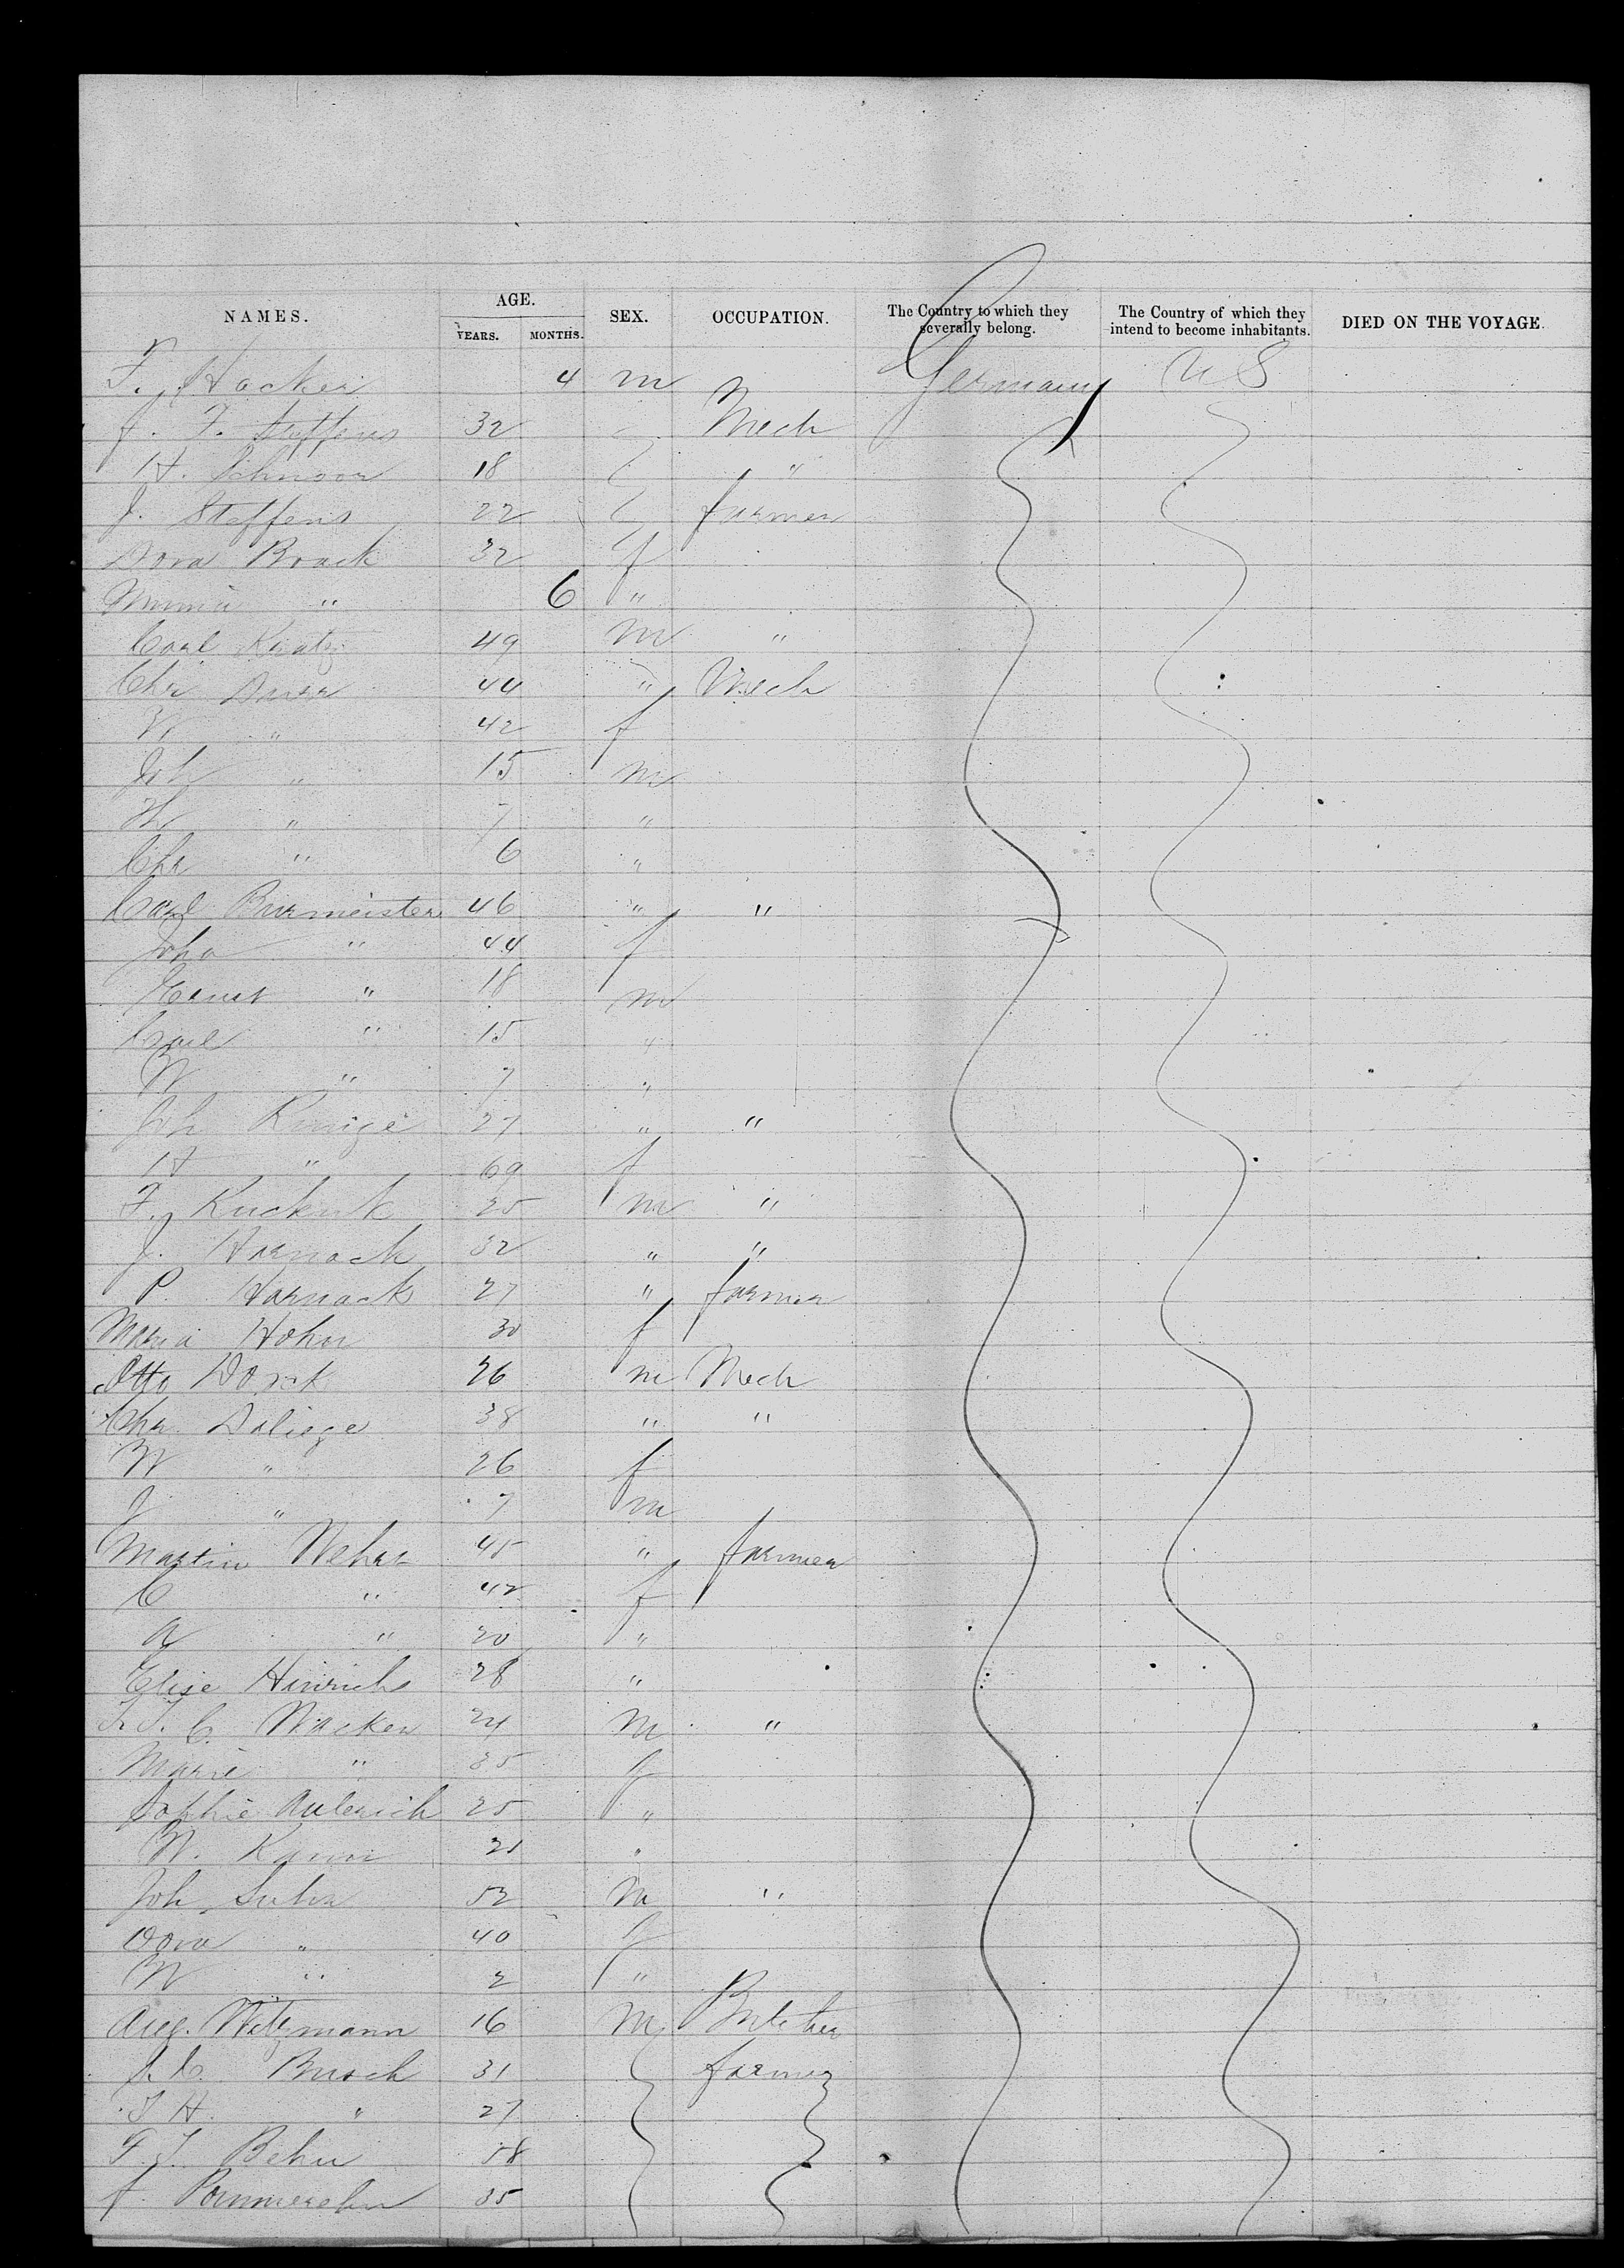 NAMES. AGE. SEX. OCCUPATION. The Country to which they severally belong. The Country of which they intend to become inhabitants. DIED ON THE VOYAGE.
YEARS. MONTHS.
F. Hacker 4 m Germany U S
J. F. Steffens 32 Mech
H. Schnoor 18 "
J. Steffens 22 farmer
Dora Brack 32 f
Minna " 6 "
Carl Kratz 49 m "
Chr 44 " Mech
W " 42 f
Joh " 15 m
H " 7 "
Chr " 6 "
Carl Burmeister 46 " "
Joha " 44 f
Ernst " 18 m
Carl " 15 "
W " 7 "
Joh Runge 27 " "
H " 69 f
F. Kuckuk 25 m "
J. Harnack 32 " "
P. Harnack 27 " farmer
Maria Hohn 30 f
Otto 26 m Mech
Chr Daliege 38 " "
W " 26 f
J " 7 m
Martin 45 " farmer
C " 42 f
A " 20 "
Elise Hinrichs 28 "
C. Wacker 24 m "
Marie " 35 f
Sophie 25 "
W. 21 "
Joh 52 m "
Dora " 40 f
W " 2 "
Aug. Witzmann 16 m Butcher
C. Busch 31 farmer
H " 27
Behn 58
35